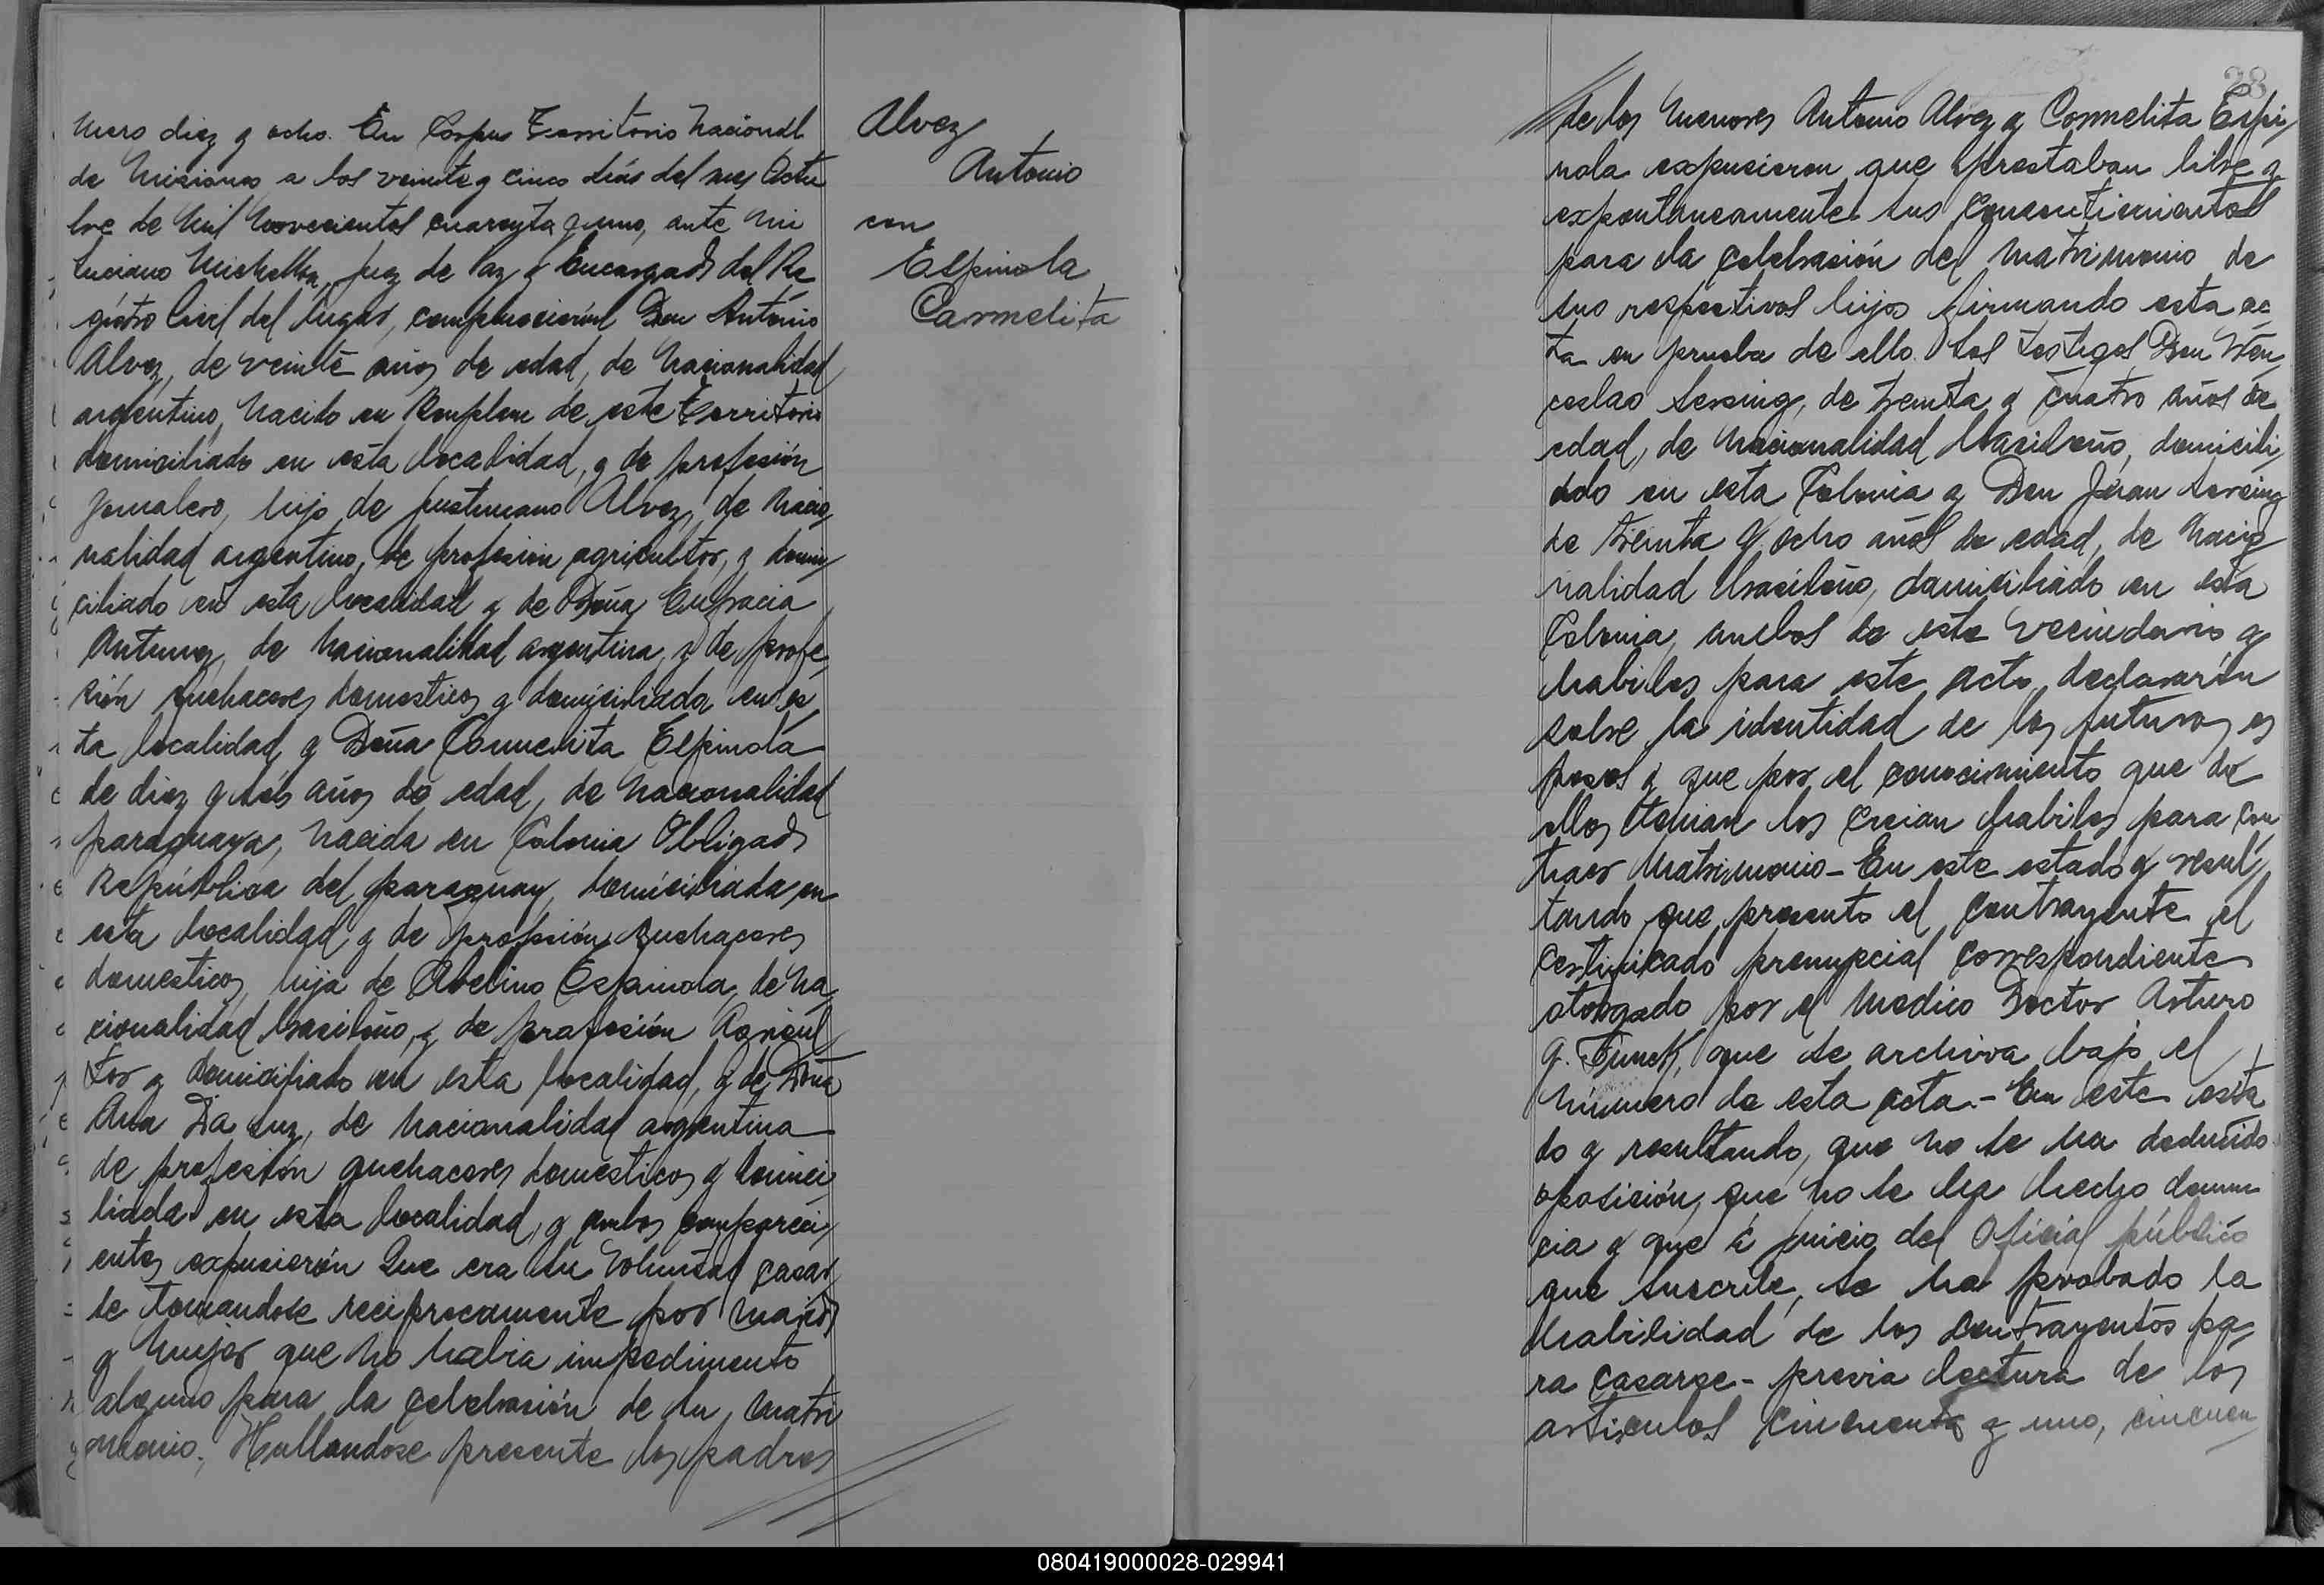 mero diez y ocho. En Corpus Territorio Nacional
de Misiones a los veinte y cinco dias del mes Octu
bre de Mil Novecientos cuarenta y uno, ante mi
Luciano Juez de Paz y Encargado del Re
gistro Civil del lugar, comparecieron Don António
Alvez, de veinte años de edad, de Nacionalidad
argentino, Nacido en de este Territorio
domiciliado en esta localidad, y de profesión
Jornalero, hijo de Justiniano Alvez, de Nacio
nalidad argentino, de profesion agricultor, y domi
ciliado en esta localidad y de Doña Eufracia
Antunez, de Nacionalidad argentina, y de profe
sión quehaceres domesticos y domiciliada en es
ta localidad, y Doña Carmelita Espinola
de diez y seis años de edad, de Nacionalidad
paraguaya, Nacida en Colonia Obligado
República del paraguay, domiciliada en
esta localidad y de profesión quehaceres
domesticos, hija de Abelino Espinola, de Na
cionalidad brasileño, y de profesión Agricul
tor y domiciliado en esta localidad, y de Doña
Ana Da Luz, de Nacionalidad argentina
de profesión quehaceres domesticos y domici
liada en esta localidad, y ambos compareci
entes expusierón Que era su Voluntad casar
se tomandose reciprocamente por Marido
y Mujer que No habia impedimento
alguno para la celebrasión de su Matri
monio. Hallandose presente los padres
Alvez
Antonio
con
Espinola
Carmelita
28
de los Menores Antonio Alvez y Carmelita Espi
nola expusieron que prestaban libre y
expontaneamente sus Consentimientos
para la celebrasión del Matrimonio de
sus respectivos hijos firmando esta ac
ta en prueba de ello. Los Testigos Don Wen
ceslao Sersing, de treinta y cuatro años de
edad, de Nacionalidad brasileño, domicili
ado en esta Colonia y Don Juan Sersing
de treinta y ocho años de edad, de Nacio
nalidad brasileño, domiciliado en esta
Colonia, ambos de este vecindario y
habiles para este acto declararón
sobre la identidad de los futuros es
posos y que por el conocimiento que de
ellos tenian los creian habiles para con
traer Matrimonio - En este estado y resul
tando que presento el contrayente el
certificado prenupcial correspondiente
otorgado por el Medico Doctor Arturo
G. Funck, que se archiva bajo el
Número de esta acta. - En este esta
do y resultando, que No se ha deducido
oposición, que No se ha hecho denun
cia y que á juicio del Oficial público
que suscribe, se ha probado la
habilidad de los contrayentes pa
ra casarse - previa lectura de los
articulos cincuenta y uno, cincuen
080419000028-029941